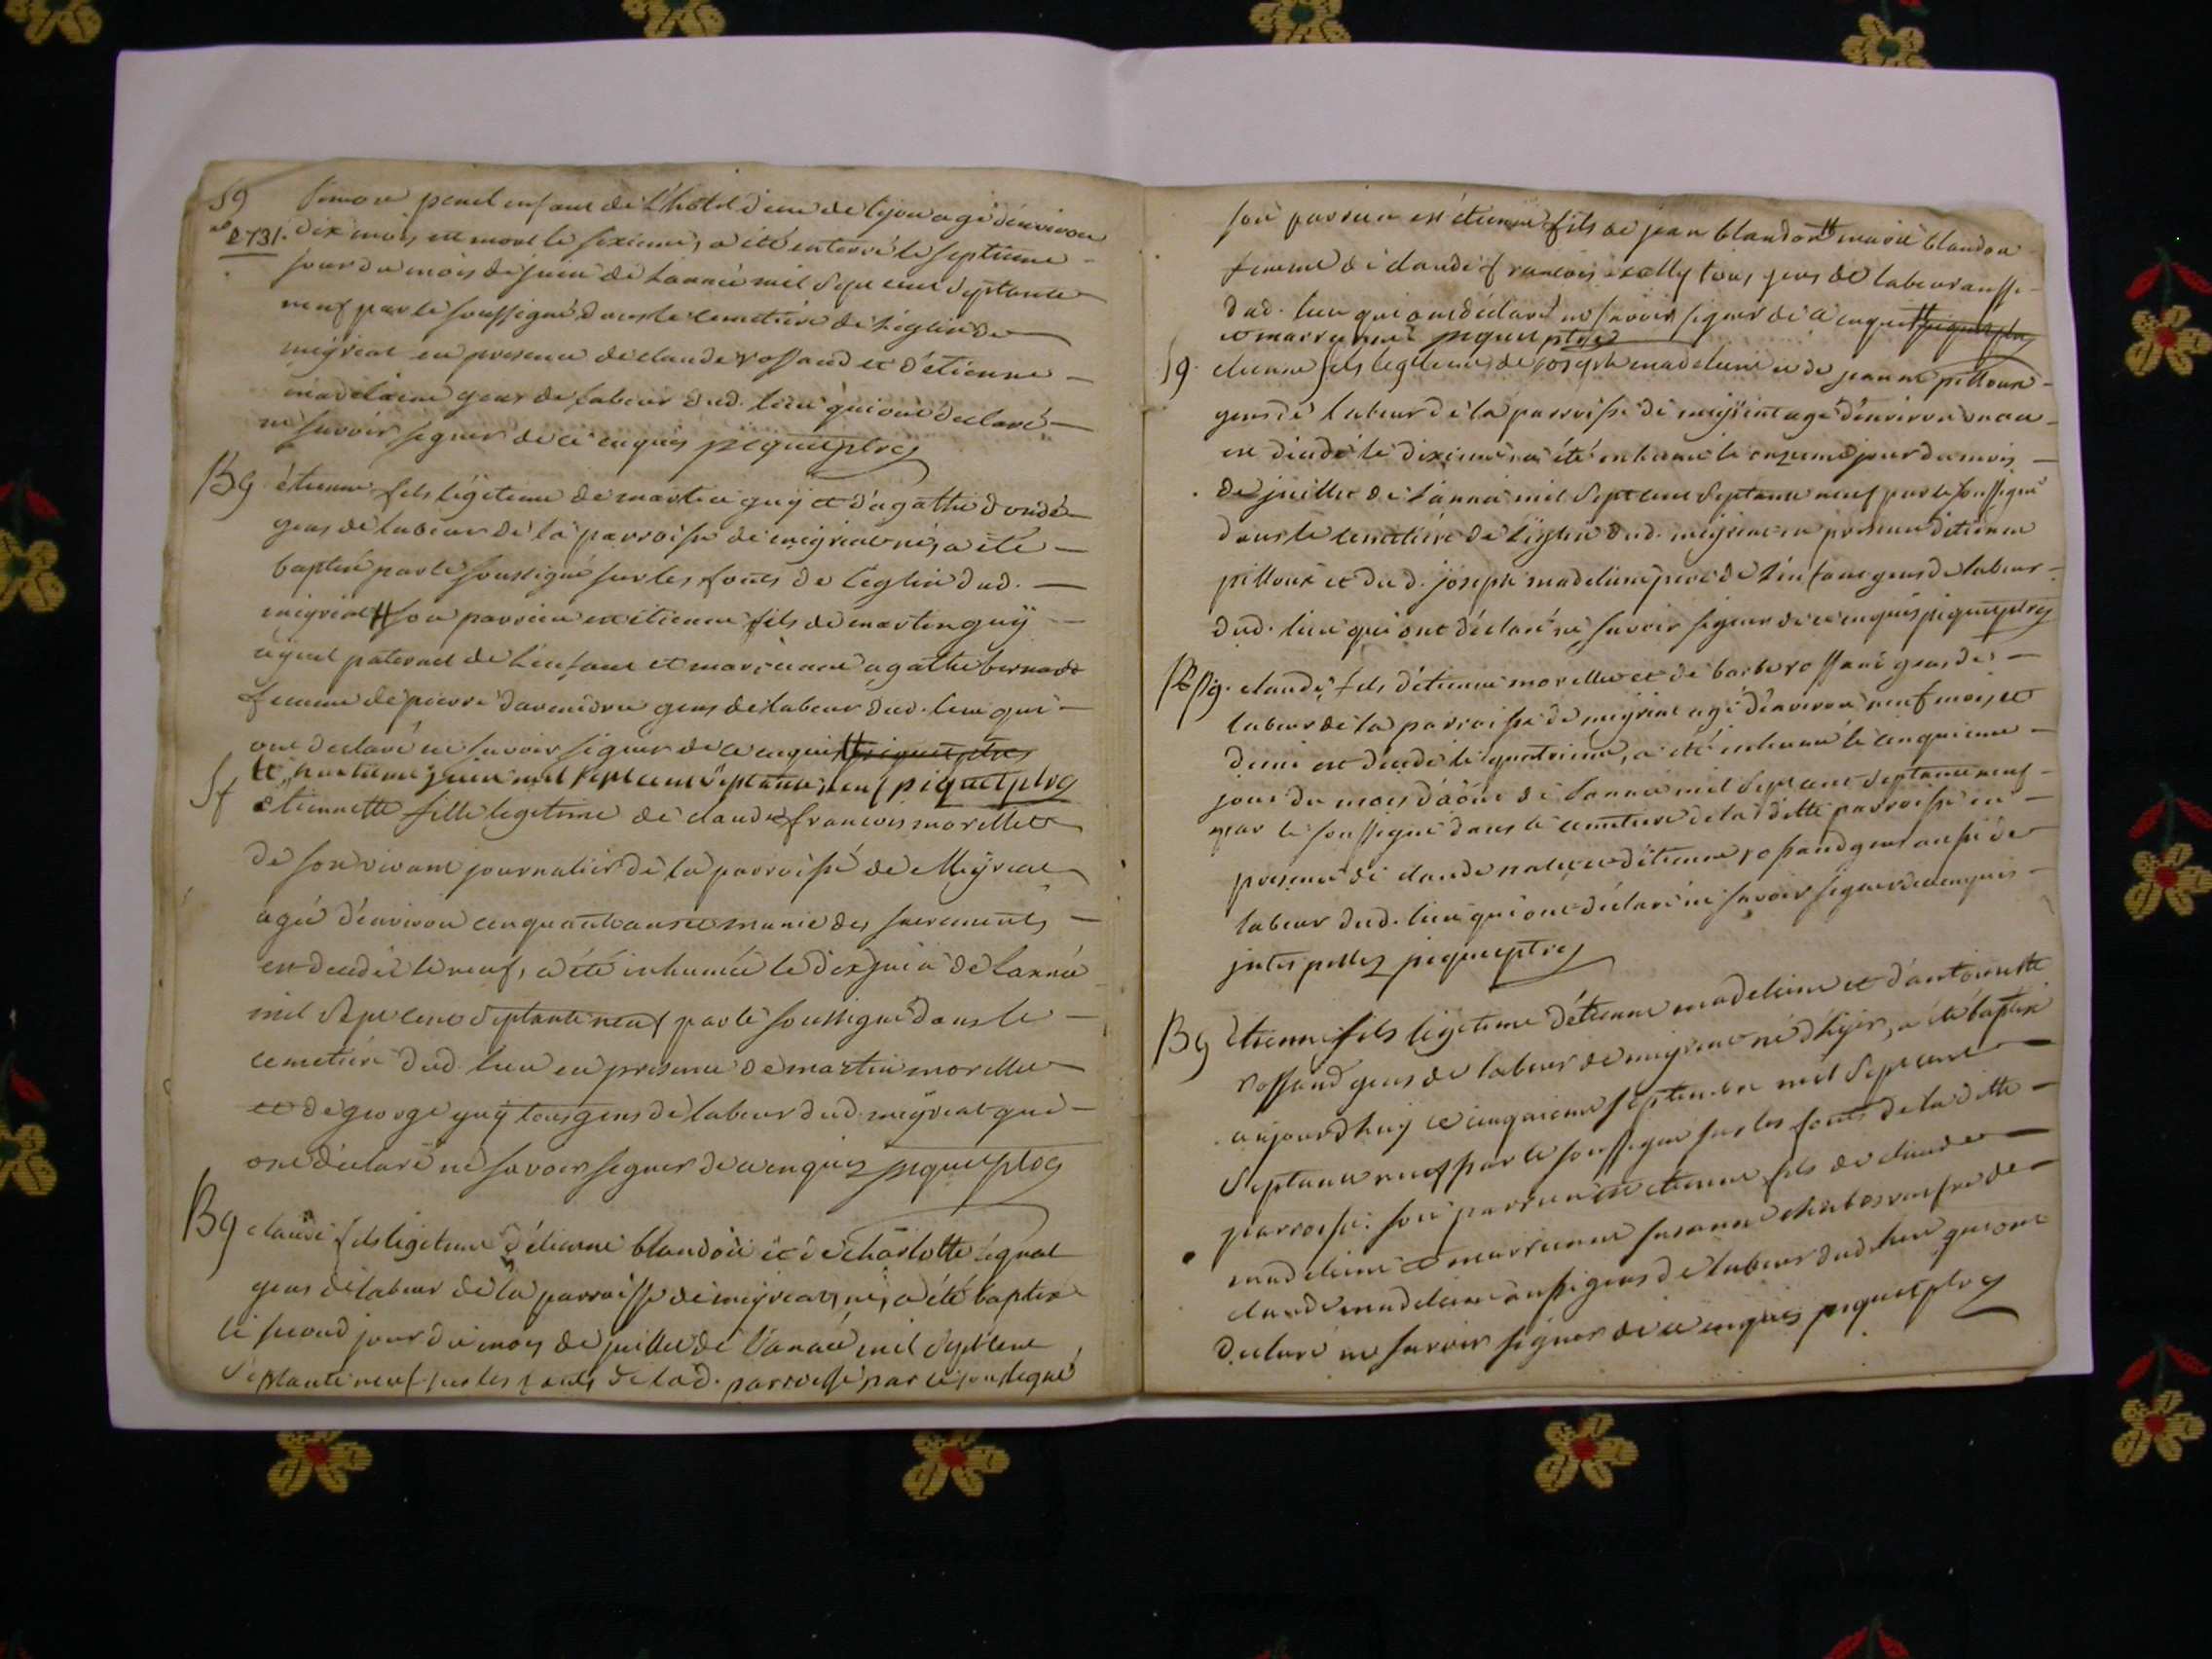 Sg
n° 2731.
Simon penel enfant de l'hotel dieu de lyon agé d'environ
dix mois, est mort le sixieme, a été enterré le septieme
jour du mois de juin de l'année mil sept cent septante
neuf par le soussigné dans le cemetiere de l'eglise de
meyriat en presence de claude rossand et d'etienne
madelaine gens de labeur dud. lieu qui ont declaré
ne savoir signer de ce enquis piquet ptre
Bg étienne fils légitime de martin guÿ et d'agathe
gens de labeur de la parroisse de meyriat né, a été
baptisé par le soussigné sur les fonts de l'eglise dud.
meyriat son parrein est étienne fils de martin guÿ
ayeul paternel de l'enfant et marreinne agathe bernard
femme de pierre gens de labeur dud. lieu qui
ont declaré ne savoir signer de ce enquis piquet ptre
le huitieme juin mil sept cent septante neuf piquet ptre
Sf etiennette fille legitime de claude françois morellet
de son vivant journalier de la parroisse de Meÿriat
agée d'environ cinquante ans et munie des sacrements
est decedée le neuf, a été inhumée le dix juin de l'année
mil sept cent septante neuf par le soussigné dans le
cemetiere dud. lieu en presence de martin morellet
et de george guÿ tous gens de labeur dud. meÿriat qui
ont déclaré ne savoir signer de ce enquis piquet ptre
Bg claude fils légitime d'étienne blandon et de charlotte
gens de labeur de la parroisse de meÿriat, né, a été baptisé
le second jour du mois de juillet de l'année mil sept cent
septante neuf sur les fonts de lad. parroisse par le soussigné
son parrein est étienne fils de jean blandon marie blandon
femme de claude françois tous gens de labeur aussi
dud. lieu qui ont déclaré ne savoir signer de ce enquis piquet ptre
et marreinne piquet ptre
Sg. etienne fils légitime de joseph madeleine et de jeanne pilloux
gens de labeur de la parroisse de meÿriat agé d'environ un an
est décédé le dixieme, a été inhumé le onzieme jour du mois
de juillet de l'année mil sept cent septante neuf par le soussigné
dans le cemetiere de l'église dud. meyriat en presence d'etienne
pilloux et dud. joseph madeleine pere de l'enfant gens de labeur
dud. lieu qui ont déclaré ne savoir signer de ce enquis piquet ptre
Sg. claude fils d'étienne morellet et de barbe rossand gens de
labeur de la parroisse de meyriat agé d'environ neuf mois et
demi est décédé le quatrieme, a été inhumé le cinquieme
jour du mois d'aôut de l'année mil sept cent septante neuf
par le soussigné dans le cemetiere de la ditte parroisse en
presence de claude et d'étienne rossand gens aussi de
labeur dud. lieu qui ont déclaré ne savoir signer de ce enquis
piquet ptre
Bg étienne fils légitime d'étienne madeleine et d'antoinette
rossand gens de labeur de meyriat né d'hÿer, a été baptisé
aujourdhuy ce cinquieme septembre mil sept cent
septante neuf par le soussigné sur les fonts de la ditte
parroisse. son parrein est etienne fils de claude
madeleine et marreinne susanne veufve de
claude madeleine aussi gens de labeur dud. lieu qui ont
declaré ne savoir signer de ce enquis piquet ptre